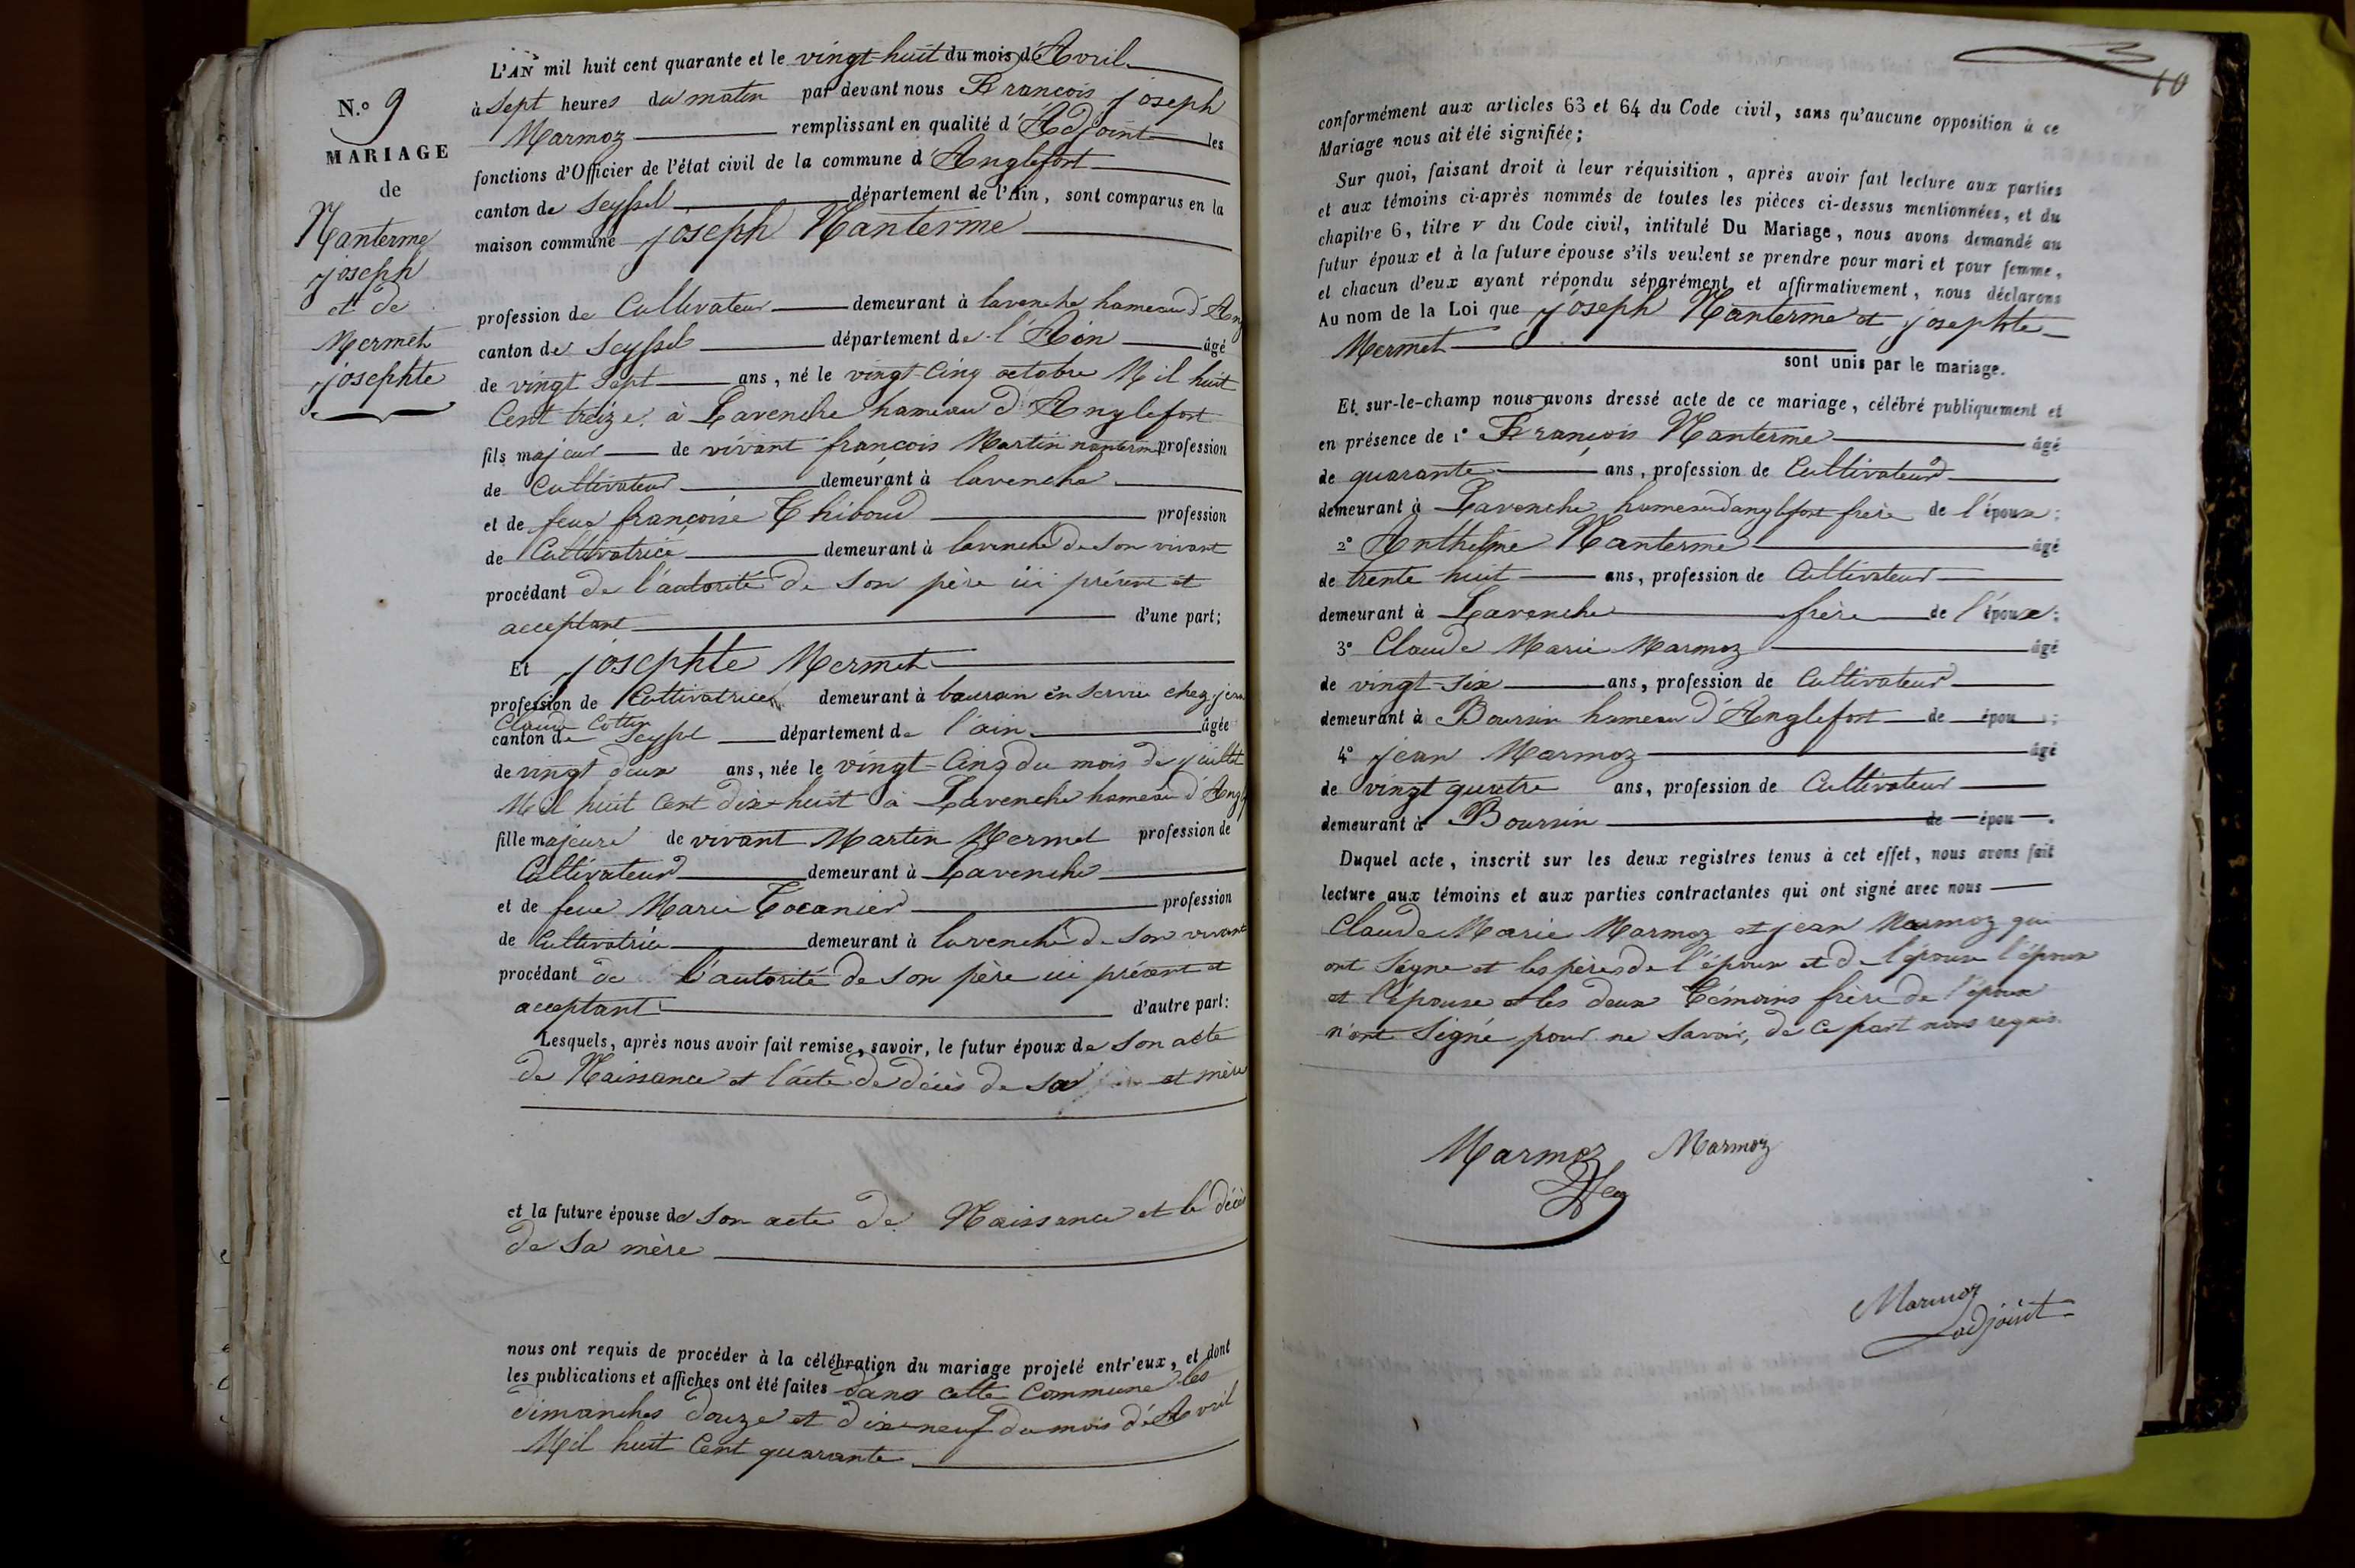 N.º 9
MARIAGE
de
Nanterme
joseph
et de
Mermet
josephte
L'AN mil huit cent quarante et le vingt-huit du mois d'Avril
à sept heures du matin par devant nous François joseph
Marmoz remplissant en qualité d'Adjoint les
fonctions d'Officier de l'état civil de la commune d'Anglefort
canton de Seyssel département de l'Ain, sont comparus en la
maison commune joseph Nanterme
profession de Cultivateur demeurant à lavenche hameau d'Ang
canton de Seyssel département de l'Ain âgé
de vingt sept ans, né le vingt-Cinq octobre Mil huit
Cent treize à Lavenche hameau d'Anglefort
fils majeur de vivant françois Martin nanterme profession
de Cultivateur demeurant à lavenche
et de feue françoise Thiboud profession
de Cultivatrice demeurant à lavenche de son vivant
procédant de l'autorité de son père ici présent et
acceptant d'une part;
Et josephte Mermet
profession de Cultivatrice demeurant à boursin en service chez jean
Claude Cottin
canton de Seyssel département de l'ain âgée
de vingt deux ans, née le vingt-Cinq du mois de juillet
Mil huit Cent dix-huit à Lavenche hameau d'Angl
fille majeure de vivant Martin Mermet profession de
Cultivateur demeurant à Lavenche
et de feue Marie Tocanier profession
de Cultivatrice demeurant à lavenche de son vivant
procédant de l'autorité de son père ici présent et
acceptant d'autre part:
Lesquels, après nous avoir fait remise, savoir, le futur époux de son acte
de Naissance et l'acte de décès de sa et mère
et la future épouse de son acte de Naissance et le décès
de sa mère
nous ont requis de procéder à la célébration du mariage projeté entr'eux, et dont
les publications et affiches ont été faites dans cette Commune les
dimanches douze et dix-neuf du mois d'Avril
Mil huit Cent quarante
10
conformément aux articles 63 et 64 du Code civil, sans qu'aucune opposition à ce
Mariage nous ait été signifiée;
Sur quoi, faisant droit à leur réquisition, après avoir fait lecture aux parties
et aux témoins ci-après nommés de toutes les pièces ci-dessus mentionnées, et du
chapitre 6, titre v du Code civil, intitulé Du Mariage, nous avons demandé au
futur époux et à la future épouse s'ils veulent se prendre pour mari et pour femme,
et chacun d'eux ayant répondu séparément et affirmativement, nous déclarons
Au nom de la Loi que joseph Nanterme et josephte
Mermet
sont unis par le mariage.
Et sur-le-champ nous avons dressé acte de ce mariage, célébré publiquement et
en présence de 1º François Nanterme âgé
de quarante ans, profession de Cultivateur
demeurant à Lavenche hameau d'anglefort frère de l'époux;
2º Anthelme Nanterme âgé
de trente huit ans, profession de Cultivateur
demeurant à Lavenche frère de l'époux;
3º Claude Marie Marmoz âgé
de vingt-six ans, profession de Cultivateur
demeurant à Boursin hameau d'Anglefort de épou ;
4º jean Marmoz âgé
de vingt quatre ans, profession de Cultivateur
demeurant à Boursin de épou .
Duquel acte, inscrit sur les deux registres tenus à cet effet, nous avons fait
lecture aux témoins et aux parties contractantes qui ont signé avec nous
Claude Marie Marmoz et jean Marmoz qui
ont Signe et les pères de l'époux et de l'épouse l'époux
et l'épouse et les deux témoins frère de l'époux
n'ont Signé pour ne savoir, de ce part nous requis.
Marmoz Marmoz
Marmoz
adjoint